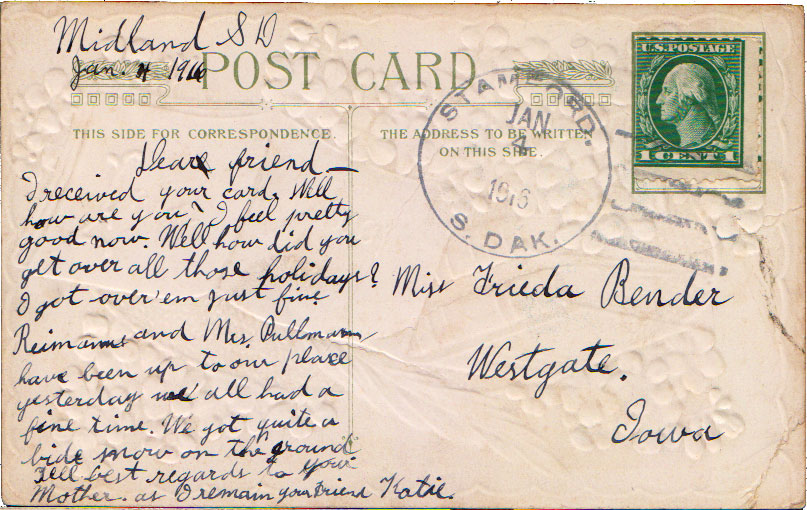 Midland S D
Jan. 4 1916
POST CARD
THIS SIDE FOR CORRESPONDENCE.
THE ADDRESS TO BE WRITTEN
ON THIS SIDE.
STAMFORD.
JAN
4
1916
S. DAK.
U.S. POSTAGE
1 CENT 1
Dear friend —
I received your card. Well
how are you? I feel pretty
good now. Well how did you
get over all those holidays?
I got over 'em just fine
Reimanns and Mrs. Pullmann
have been up to our place
yesterday we all had a
fine time. We got quite a
bide snow on the ground
Tell best regards to your
Mother. as I remain your friend Katie.
Miss Frieda Bender
Westgate.
Iowa